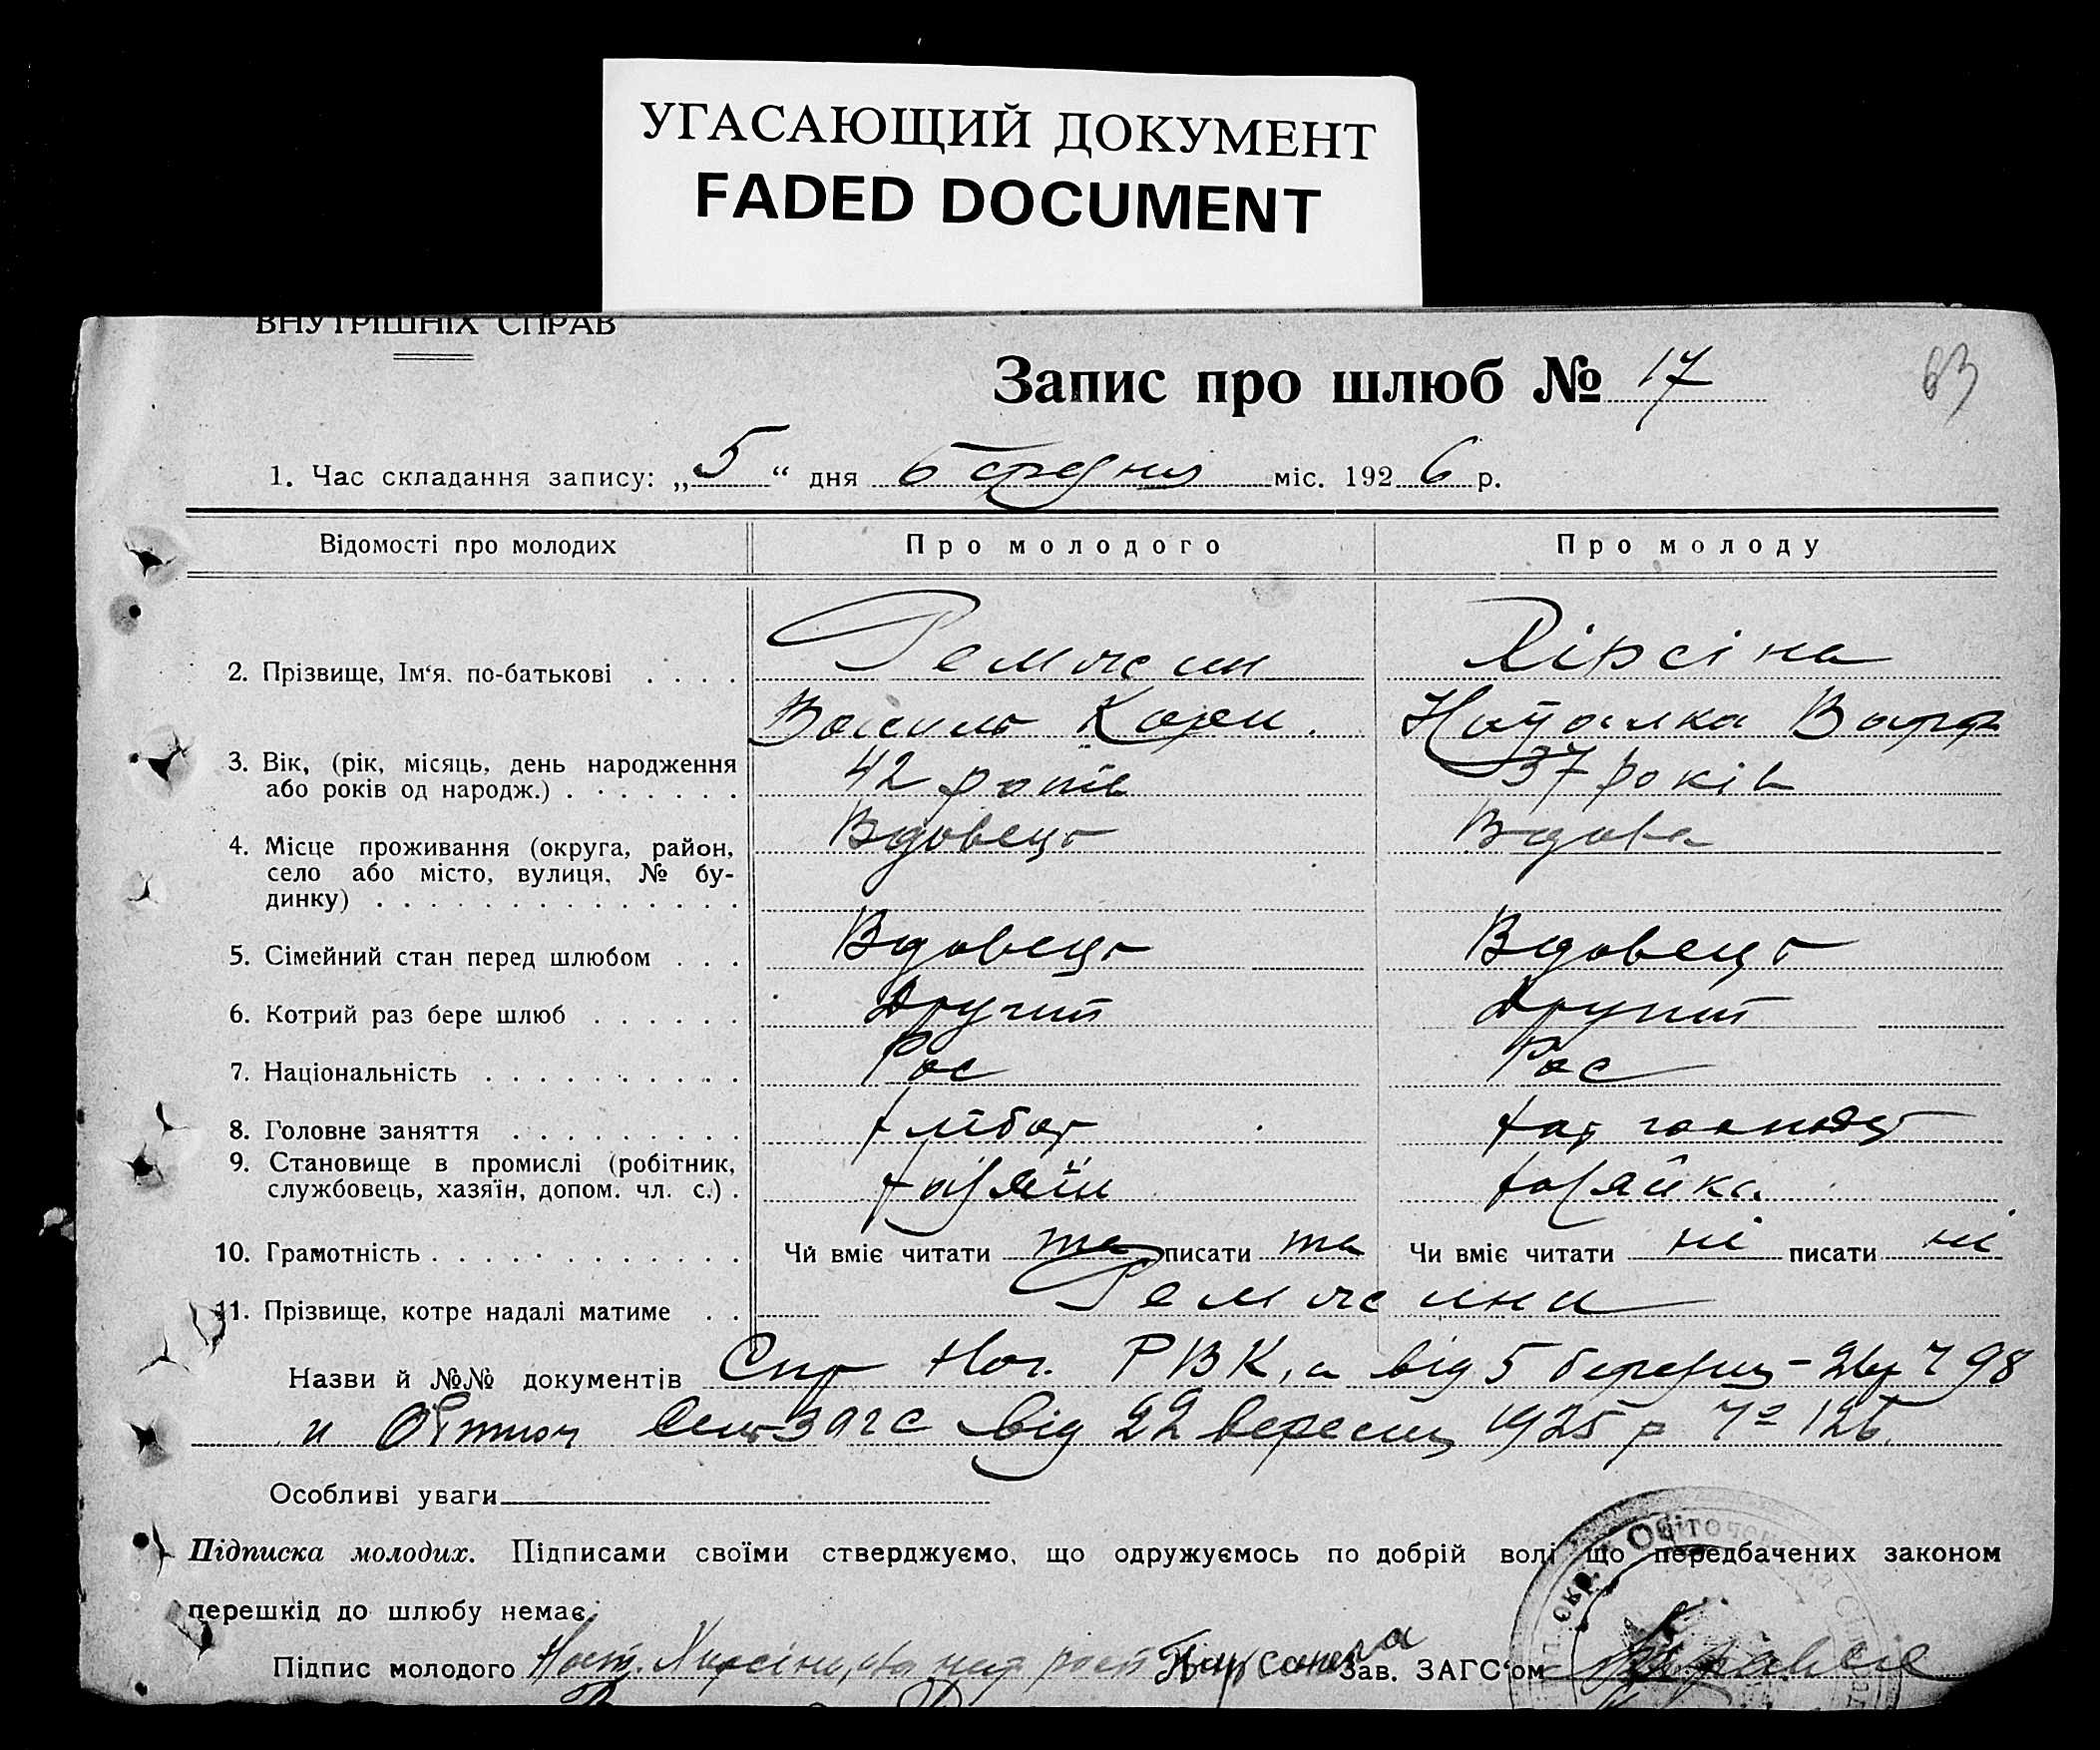 УГАСАЮЩИЙ ДОКУМЕНТ
FADED DOCUMENT
ВНУТРІШНІХ СПРАВ
Запис про шлюб № 17
63
1. Час складання запису: „5“ дня березня міс. 1926 р.
Відомості про молодих Про молодого Про молоду
2. Прізвище, Ім‘я, по-батькові Хірсіна
Василь Наталка Варф
3. Вік, (рік, місяць, день народження
або років од народж.) 42 років 37 років
4. Місце проживання (округа, район, Вдовець Вдова
село або місто, вулиця, № бу-
динку)
5. Сімейний стан перед шлюбом Вдовець Вдовець
6. Котрий раз бере шлюб Другий Другий
7. Національність Рос Рос
8. Головне заняття хлібор хат господ
9. Становище в промислі (робітник,
службовець, хазяїн, допом. чл. с.) хазяїн хазяйка
10. Грамотність Чи вміє читати та писати та Чи вміє читати ні писати ні
11. Прізвище, котре надалі матиме
Назви й №№ документів Спр Ног. РВК,а від 5 березня - 26р 798
и Обіточ ЗАГС від 22 вересня 1925 р № 126.
Особливі уваги
Підписка молодих. Підписами своїми стверджуємо, що одружуємось по добрій волі що передбачених законом
перешкід до шлюбу немає.
Підпис молодого Зав. ЗАГС‘ом